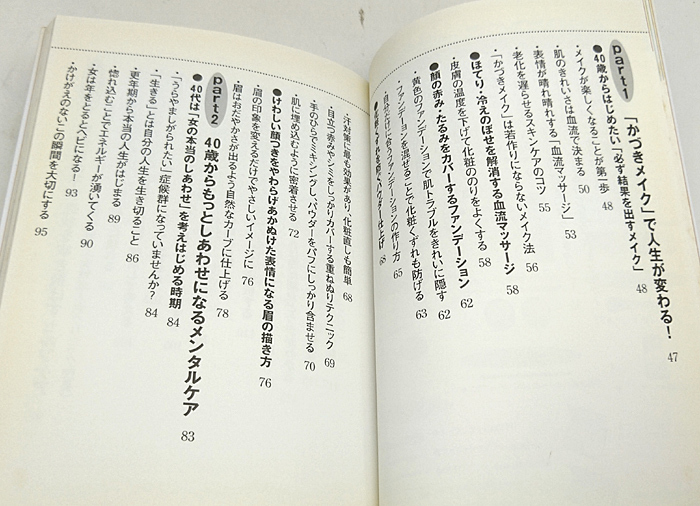 part1 「かづきメイク」で人生が変わる! 47
●40歳からはじめたい「必ず結果を出すメイク」 48
・メイクが楽しくなることが第一歩 48
・肌のきれいさは血流で決まる 50
・表情が晴れ晴れする「血流マッサージ」 53
・老化を遅らせるスキンケアのコツ 55
・「かづきメイク」は若作りにならないメイク法 56
●ほてり・冷えのぼせを解消する血流マッサージ 58
・皮膚の温度を下げて化粧ののりをよくする 58
●顔の赤み・たるみをカバーするファンデーション 62
・黄色のファンデーションで肌トラブルをきれいに隠す 62
・ファンデーションを混ぜることで化粧くずれも防げる 63
・自分だけに合うファンデーションの作り方 65
パウダー仕上げ 68
・汗対策に最も効果があり、化粧直しも簡単 68
・目立つ赤みやシミをしっかりカバーする重ねぬりテクニック 69
・手のひらでミキシングし、パウダーをパフにしっかり含ませる 70
・肌に埋め込むように密着させる 72
●けわしい顔つきをやわらげあかぬけた表情になる眉の描き方 76
・眉の印象を変えるだけでやさしいイメージに 76
・眉はおだやかさが出るよう自然なカーブに仕上げる 78
part2 40歳からもっとしあわせになるメンタルケア 83
●40代は「女の本当のしあわせ」を考えはじめる時期 84
・「うらやましがられたい」症候群になっていませんか? 84
・「生きる」とは自分の人生を生き切ること 86
・更年期から本当の人生がはじまる 89
・惚れ込むことでエネルギーが湧いてくる 90
・女は年をとるとヘビになる! 93
・かけがえのないこの瞬間を大切にする 95